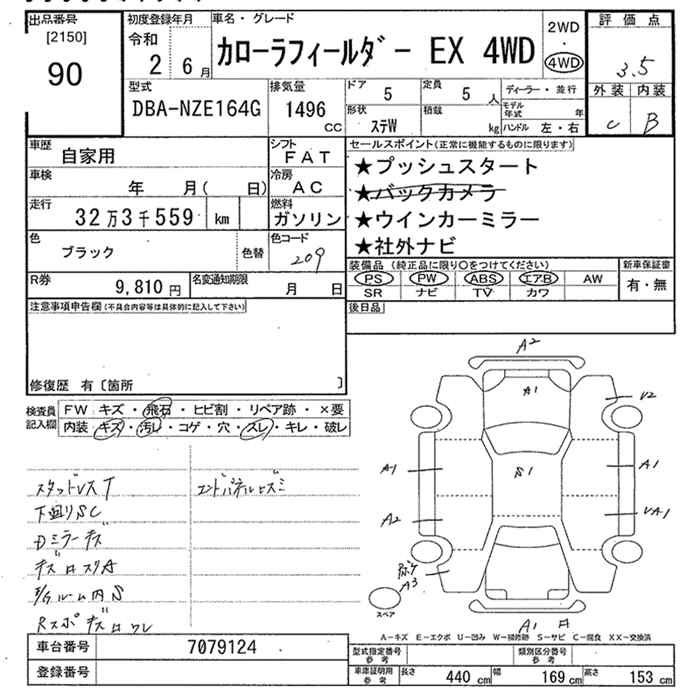 出品番号
[2150]
90
初度登録年月
令和
2 6月
車名・グレード
カローラフィールダー EX 4WD
2WD
・
4WD
評価点
3.5
外装 内装
C B
型式
DBA-NZE164G
排気量
1496
CC
ドア
5
定員
5
人
形状
ステW
積載
kg
ディーラー・並行
モデル
年式 年
ハンドル 左・右
車歴
自家用
シフト
FAT
車検
年 月( 日)
冷房
AC
走行
32万3千559 km
燃料
ガソリン
色
ブラック
色替
色コード
209
R券
9,810円
名変通知期限
月 日
セールスポイント(正常に機能するものに限ります)
★プッシュスタート
★バックカメラ
★ウインカーミラー
★社外ナビ
装備品(純正品に限り○をつけてください)
PS PW ABS エアB AW
SR ナビ TV カワ
新車保証書
有・無
後日品
注意事項申告欄(不具合内容等は具体的に記入して下さい)
修復歴 有〔箇所 〕
検査員
記入欄
FW キズ・飛石・ヒビ割・リペア跡・×要
内装 キズ・汚レ・コゲ・穴・スレ・キレ・破レ
下廻りSC
Dミラーキズ
エンドパネルヒズミ
A2
A1
U2
A1
S1
A1
A2
A3
A1
スペア
A-キズ E-エクボ U-凹み W-補修跡 S-サビ C-腐食 XX-交換済
車台番号
7079124
登録番号
型式指定番号
参考
類別区分番号
参考
車庫証明用
参考
長さ 440 cm 幅 169 cm 高さ 153 cm